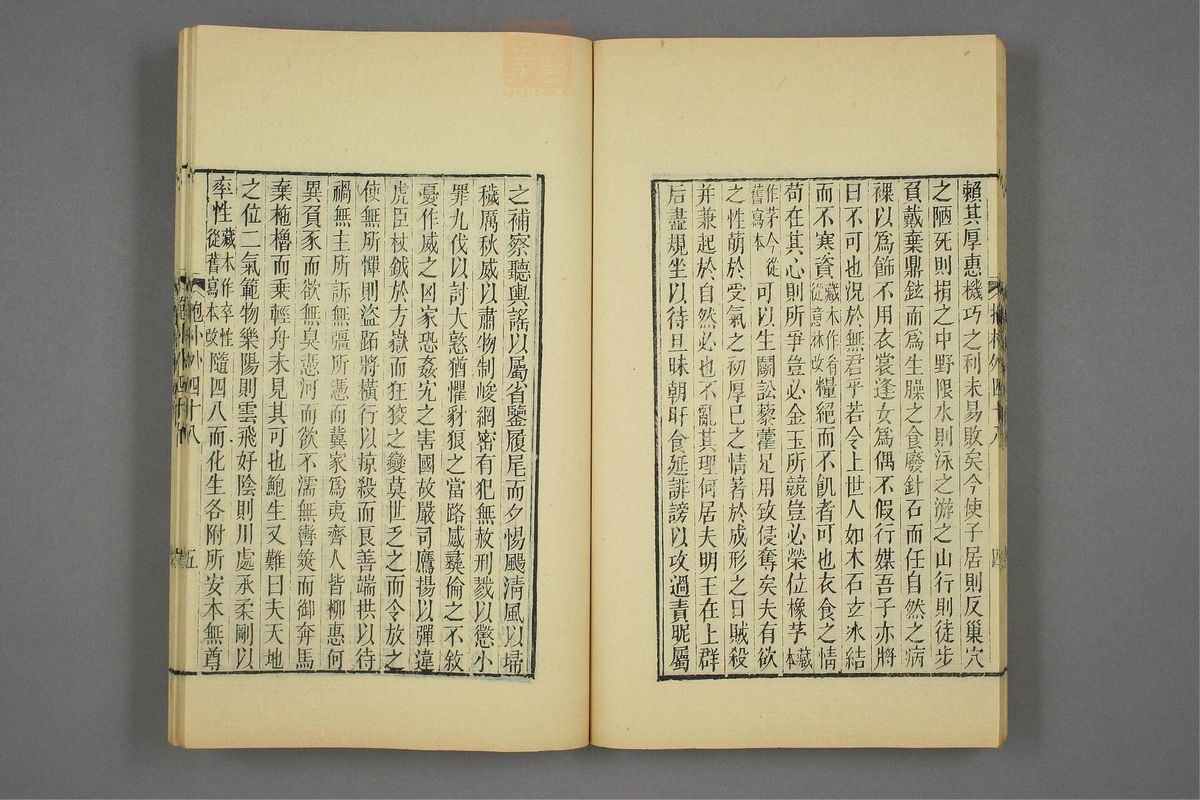 賴其厚惠機巧之利未易敗矣今使子居則反巢穴
之陋死則捐之中野限水則泳之游之山行則徒步
負戴棄鼎鉉而爲生臊之食廢針石而任自然之病
裸以爲飾不用衣裳逢女爲偶不假行媒吾子亦將
曰不可也況於無君乎若令上世人如木石玄冰結
而不寒資藏本作肴從意林改糧絕而不飢者可也衣食之情
苟在其心則所爭豈必金玉所競豈必榮位橡芧藏本
作茅今從舊寫本可以生鬭訟藜藿足用致侵奪矣夫有欲
之性萌於受氣之初厚已之情著於成形之日賊殺
并兼起於自然必也不亂其理何居夫明王在上群
后盡規坐以待旦昧朝旰食延誹謗以攻過責昵屬
之補察聽輿謠以屬省鑒履尾而夕惕颺淸風以埽
穢厲秋威以肅物制峻網密有犯無赦刑戮以懲小
罪九伐以討大憝猶懼豺狼之當路感彝倫之不敘
憂作威之凶家恐姦宄之害國故嚴司鷹揚以彈違
虎臣杖鉞於方嶽而狂狡之變莫世乏之而令放之
使無所憚則盜跖將橫行以掠殺而良善端拱以待
禍無主所訴無彊所憑而冀家爲夷齊人皆柳惠何
異負豕而欲無臭憑河而欲不濡無轡筴而御奔馬
棄柂櫓而乘輕舟未見其可也鮑生又難曰夫天地
之位二氣範物樂陽則雲飛好陰則川處承柔剛以
率性藏本作卒性從舊寫本改隨四八而化生各附所安本無尊
抱卜外四十八
五
四